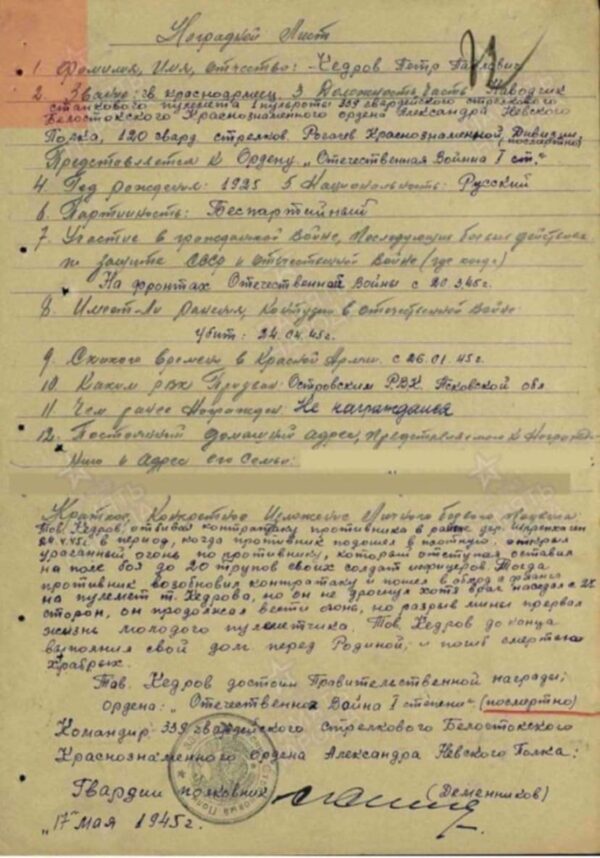 Наградной Лист
1. Фамилия, Имя, отчество: Хедров Петр Павлович
2. Звание: гв. красноармеец. 3. Должность, часть Наводчик
станкового пулемета 1 пульроты 339 гвардейского стрелкового
Белостокского Краснознаменного ордена Александра Невского
Полка, 120 гвард. стрелков. Рогачев Краснознаменной, Дивизии
Представляется к Ордену „Отечественная Война I ст." (посмертно)
4. Год рождения: 1925 5 Национальность: Русский
6. Партийность: Беспартийный
7. Участие в гражданской войне, последующих боевых действиях
по защите СССР и отечественной войне (где когда)
На фронтах Отечественной Войны с 20.3.45г.
8. Имеет-ли ранения, контузии в отечественной войне:
Убит: 24.04.45г.
9. Скокого времени в Красной Армии. с 26.01.45г.
10. Каким РВК Призван Островским РВК. Псковской обл
11. Чем ранее награжден. Не награждался
12. Постоянный домашний адрес, представляемого к Награжде-
нию и адрес его Семьи:
Краткое, Конкретное Изложение Личного боевого Подвига
Тов. Хедров, отбивая контратаку противника в районе дер.
24.4.45г. в период, когда противник подошел вплотную, открыл
ураганный огонь по противнику, который отступая оставил
на поле боя до 20 трупов своих солдат и офицеров. Тогда
противник возобновил контратаку и пошел в обход с фланга
на пулемет т. Хедрова, но он не дрогнул хотя враг наседал с 2х
сторон, он продолжал вести огонь, но разрыв мины прервал
жизнь молодого пулеметчика. Тов. Хедров до конца
выполнил свой долг перед Родиной, и погиб смертью
храбрых.
Тов. Хедров достоин Правительственной награды,
ордена: „Отечественная Война I степени" (посмертно)
Командир 339 гвардейского стрелкового Белостокского
Краснознаменного ордена Александра Невского Полка:
Гвардии полковник (Деменников)
„17" мая 1945г.